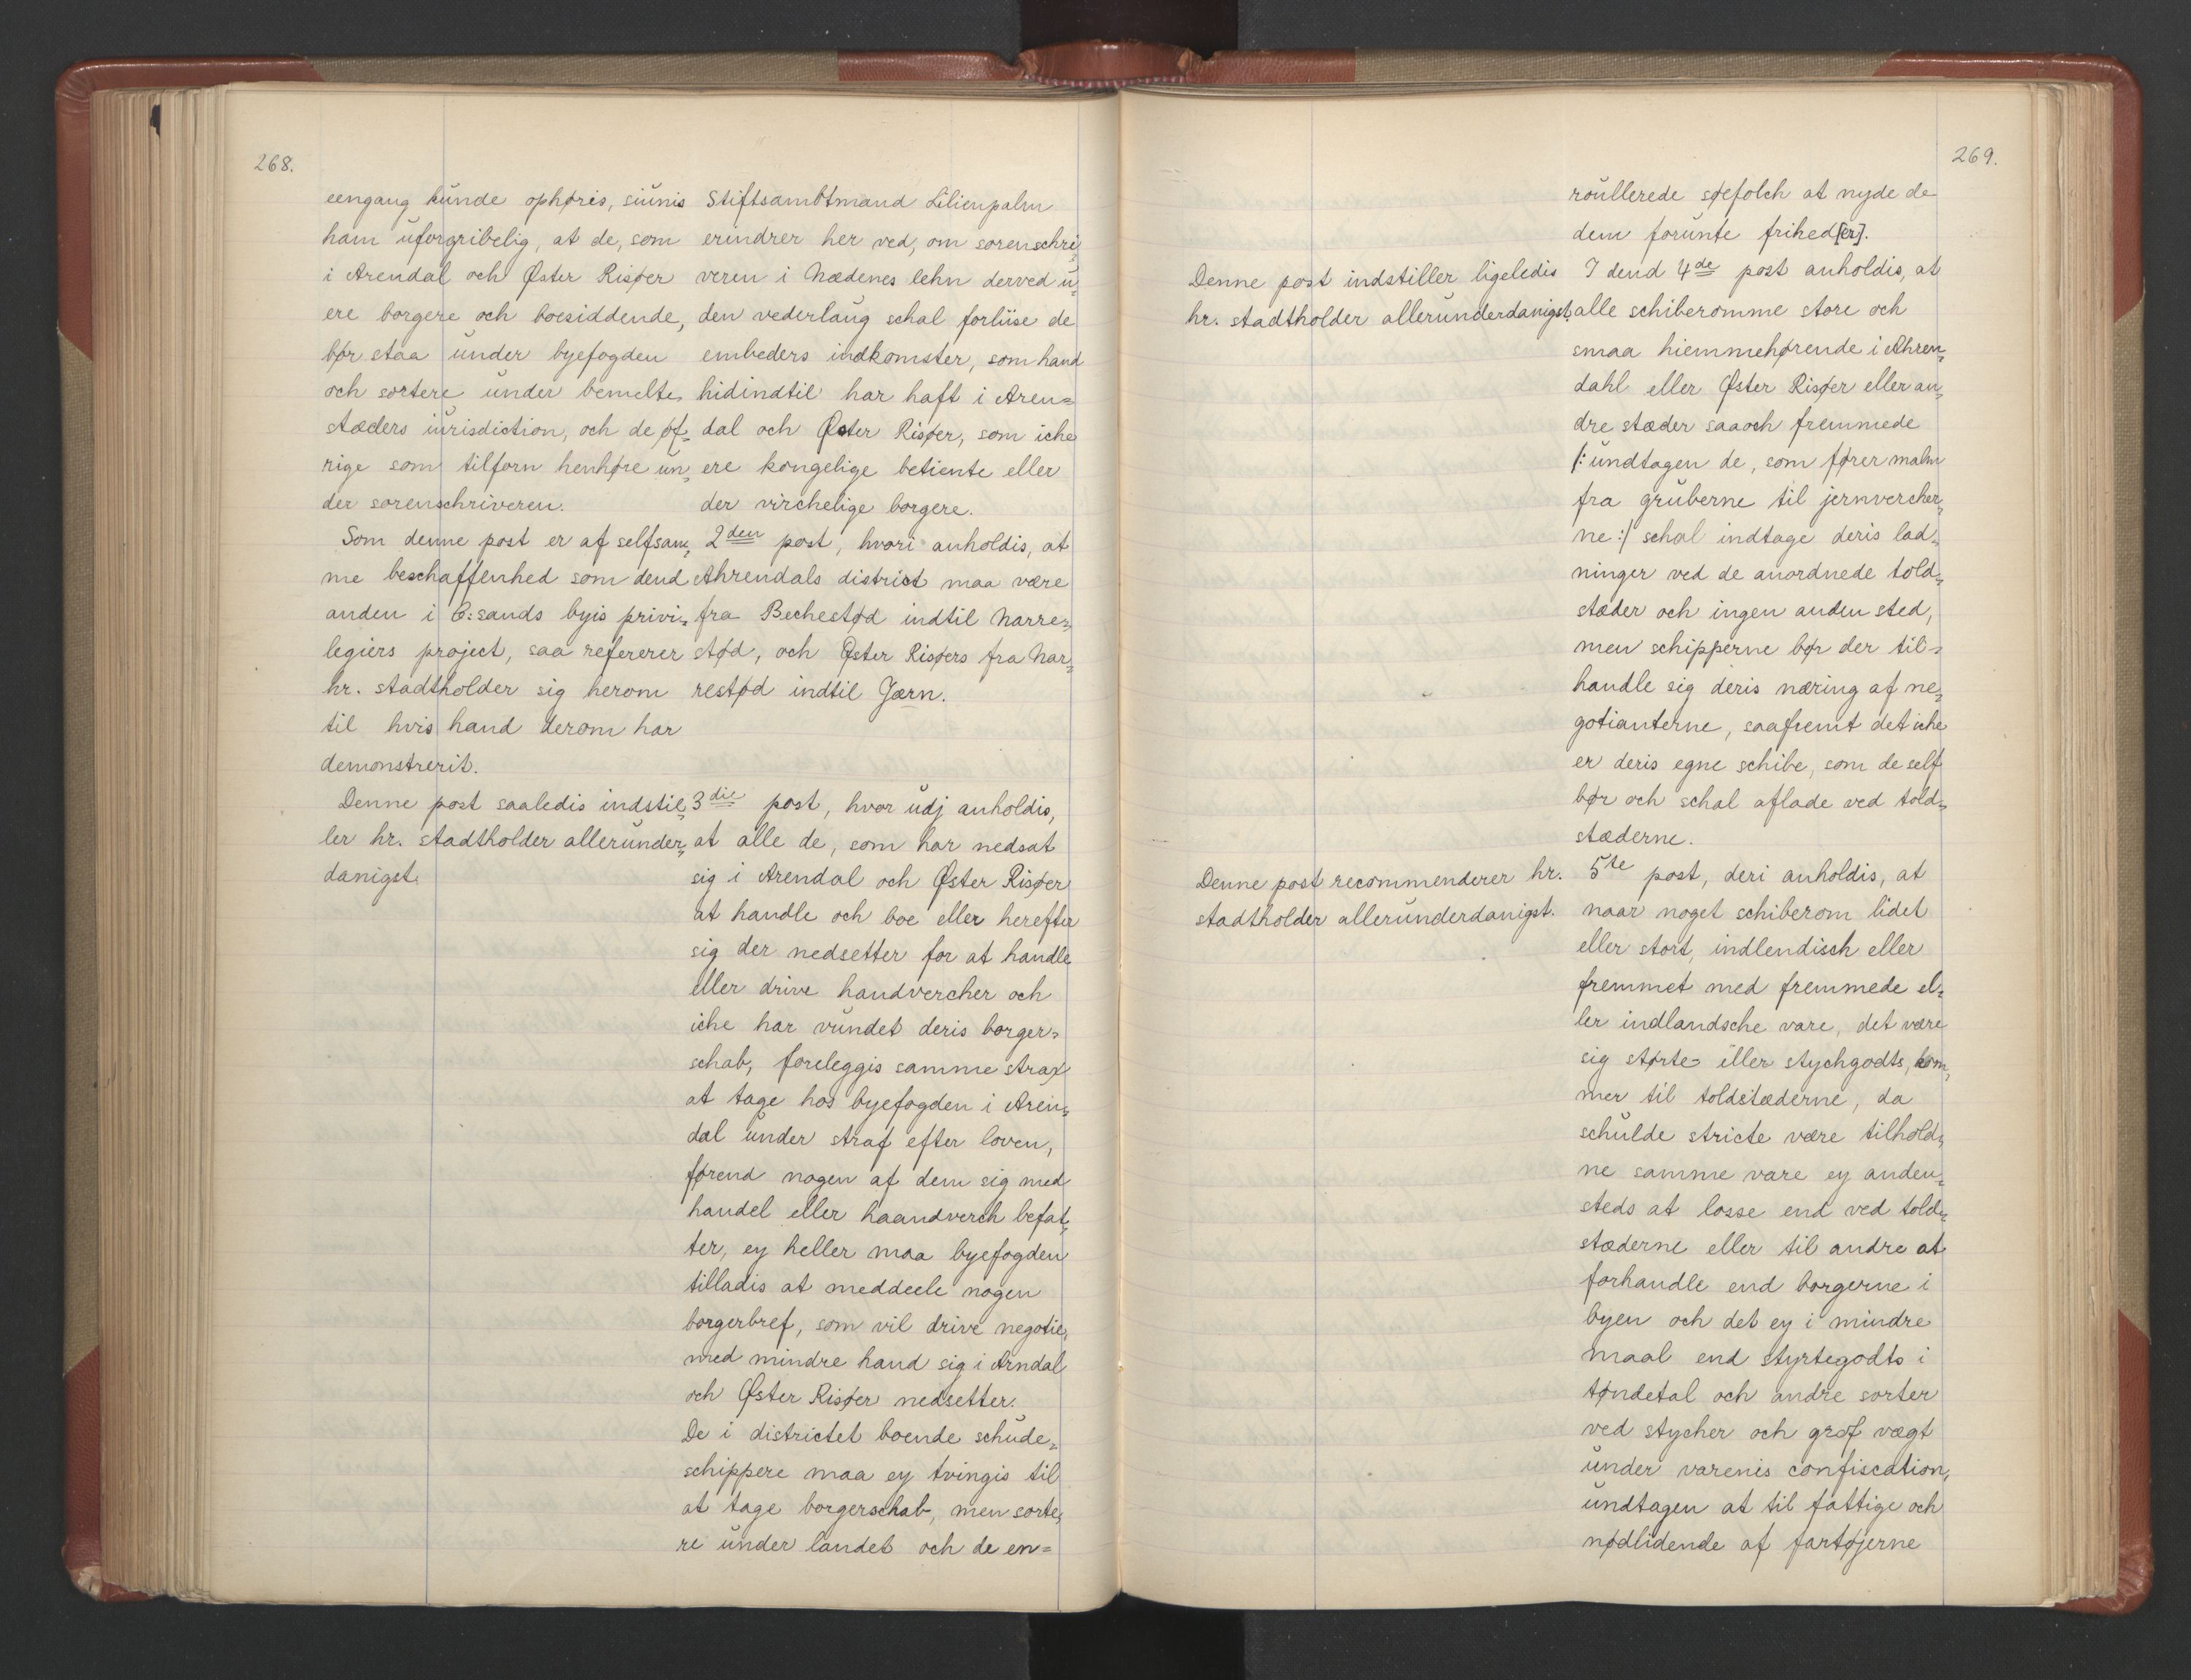 268.
eengang kunde ophøris, siunis
ham uforgribelig, at de, som
i Arendal och Øster Risøer
ere borgere och boesiddende,
bør staa under byefogden
och sortere under bemelte
stæders iurisdiction, och de øf-
rige som tilforn henhøre un-
der sorenschriveren.
Som denne post er af selfsam-
me beschaffenhed som dend
anden i C:sands byis privi-
legiers project, saa refererer
hr. stadtholder sig herom
til hvis hand derom har
demonstrerit.
Denne post saaledis indstil-
ler hr. stadtholder allerunder-
danigst.
Stiftsambtmand Lilienpalm
erindrer her ved, om sorenschri-
veren i Nædenes lehn derved u-
den vederlaug schal forliise de
embeders indkomster, som hand
hidindtil har haft i Aren-
dal och Øster Risøer, som iche
ere kongelige betiente eller
der virchelige borgere.
2den post, hvori anholdis, at
Ahrendals district maa være
fra Bechestød indtil Narre-
stød, och Øster Risøers fra Nar-
restød indtil Jærn.
3die post, hvor udj anholdis,
at alle de, som har nedsat
sig i Arendal och Øster Risøer
at handle och boe eller herefter
sig der nedsetter for at handle
eller drive handvercher och
iche har vundet deris borger-
schab, foreleggis samme strax
at tage hos byefogden i Aren-
dal under straf efter loven,
førend nogen af dem sig med
handel eller haandverch befat-
ter, ey heller maa byefogden
tilladis at meddeele nogen
borgerbref, som vil drive negotie,
med mindre hand sig i Arndal
och Øster Risøer nedsetter.
De i districtet boende schude-
schippere maa ey tvingis til
at tage borgerschab, men sorte-
re under landet och de en=
269.
roullerede søefolch at nyde de
dem forunte frihed[er].
Denne post indstiller ligeledis
hr. stadtholder allerunderdanigst.
I dend 4de post anholdis, at
alle schiberomme store och
smaa hiemmehørende i Ahren-
dahl eller Øster Risøer eller an-
dre stæder saaoch fremmede
/: undtagen de, som fører malm
fra gruberne til jernvercher-
ne :/ schal indtage deris lad-
ninger ved de anordnede told-
stæder och ingen anden sted,
men schipperne bør der til-
handle sig deris næring af ne-
gotianterne, saafremt det iche
er deris egne schibe, som de self
bør och schal aflade ved told-
stæderne.
Denne post recommenderer hr.
stadtholder allerunderdanigst.
5te post, deri anholdis, at
naar noget schiberom lidet
eller stort, indlendisch eller
fremmet med fremmede el-
ler indlandsche vare, det være
sig størte- eller stychgodts, kom-
mer til toldstæderne, da
schulde stricte være tilhold-
ne samme vare ey anden-
steds at losse end ved told-
stæderne eller til andre at
forhandle end borgerne i
byen och det ey i mindre
maal end styrtegodts i
tøndetal och andre sorter
ved stycher och grof vægt
under varenis confiscation,
undtagen at til fattige och
nødlidende af fartøjerne